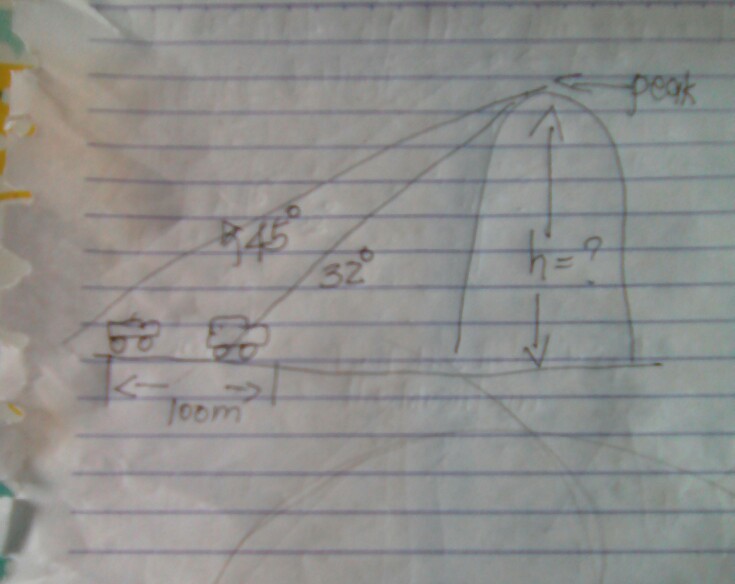 peak
45°
h = ?
32°
100m